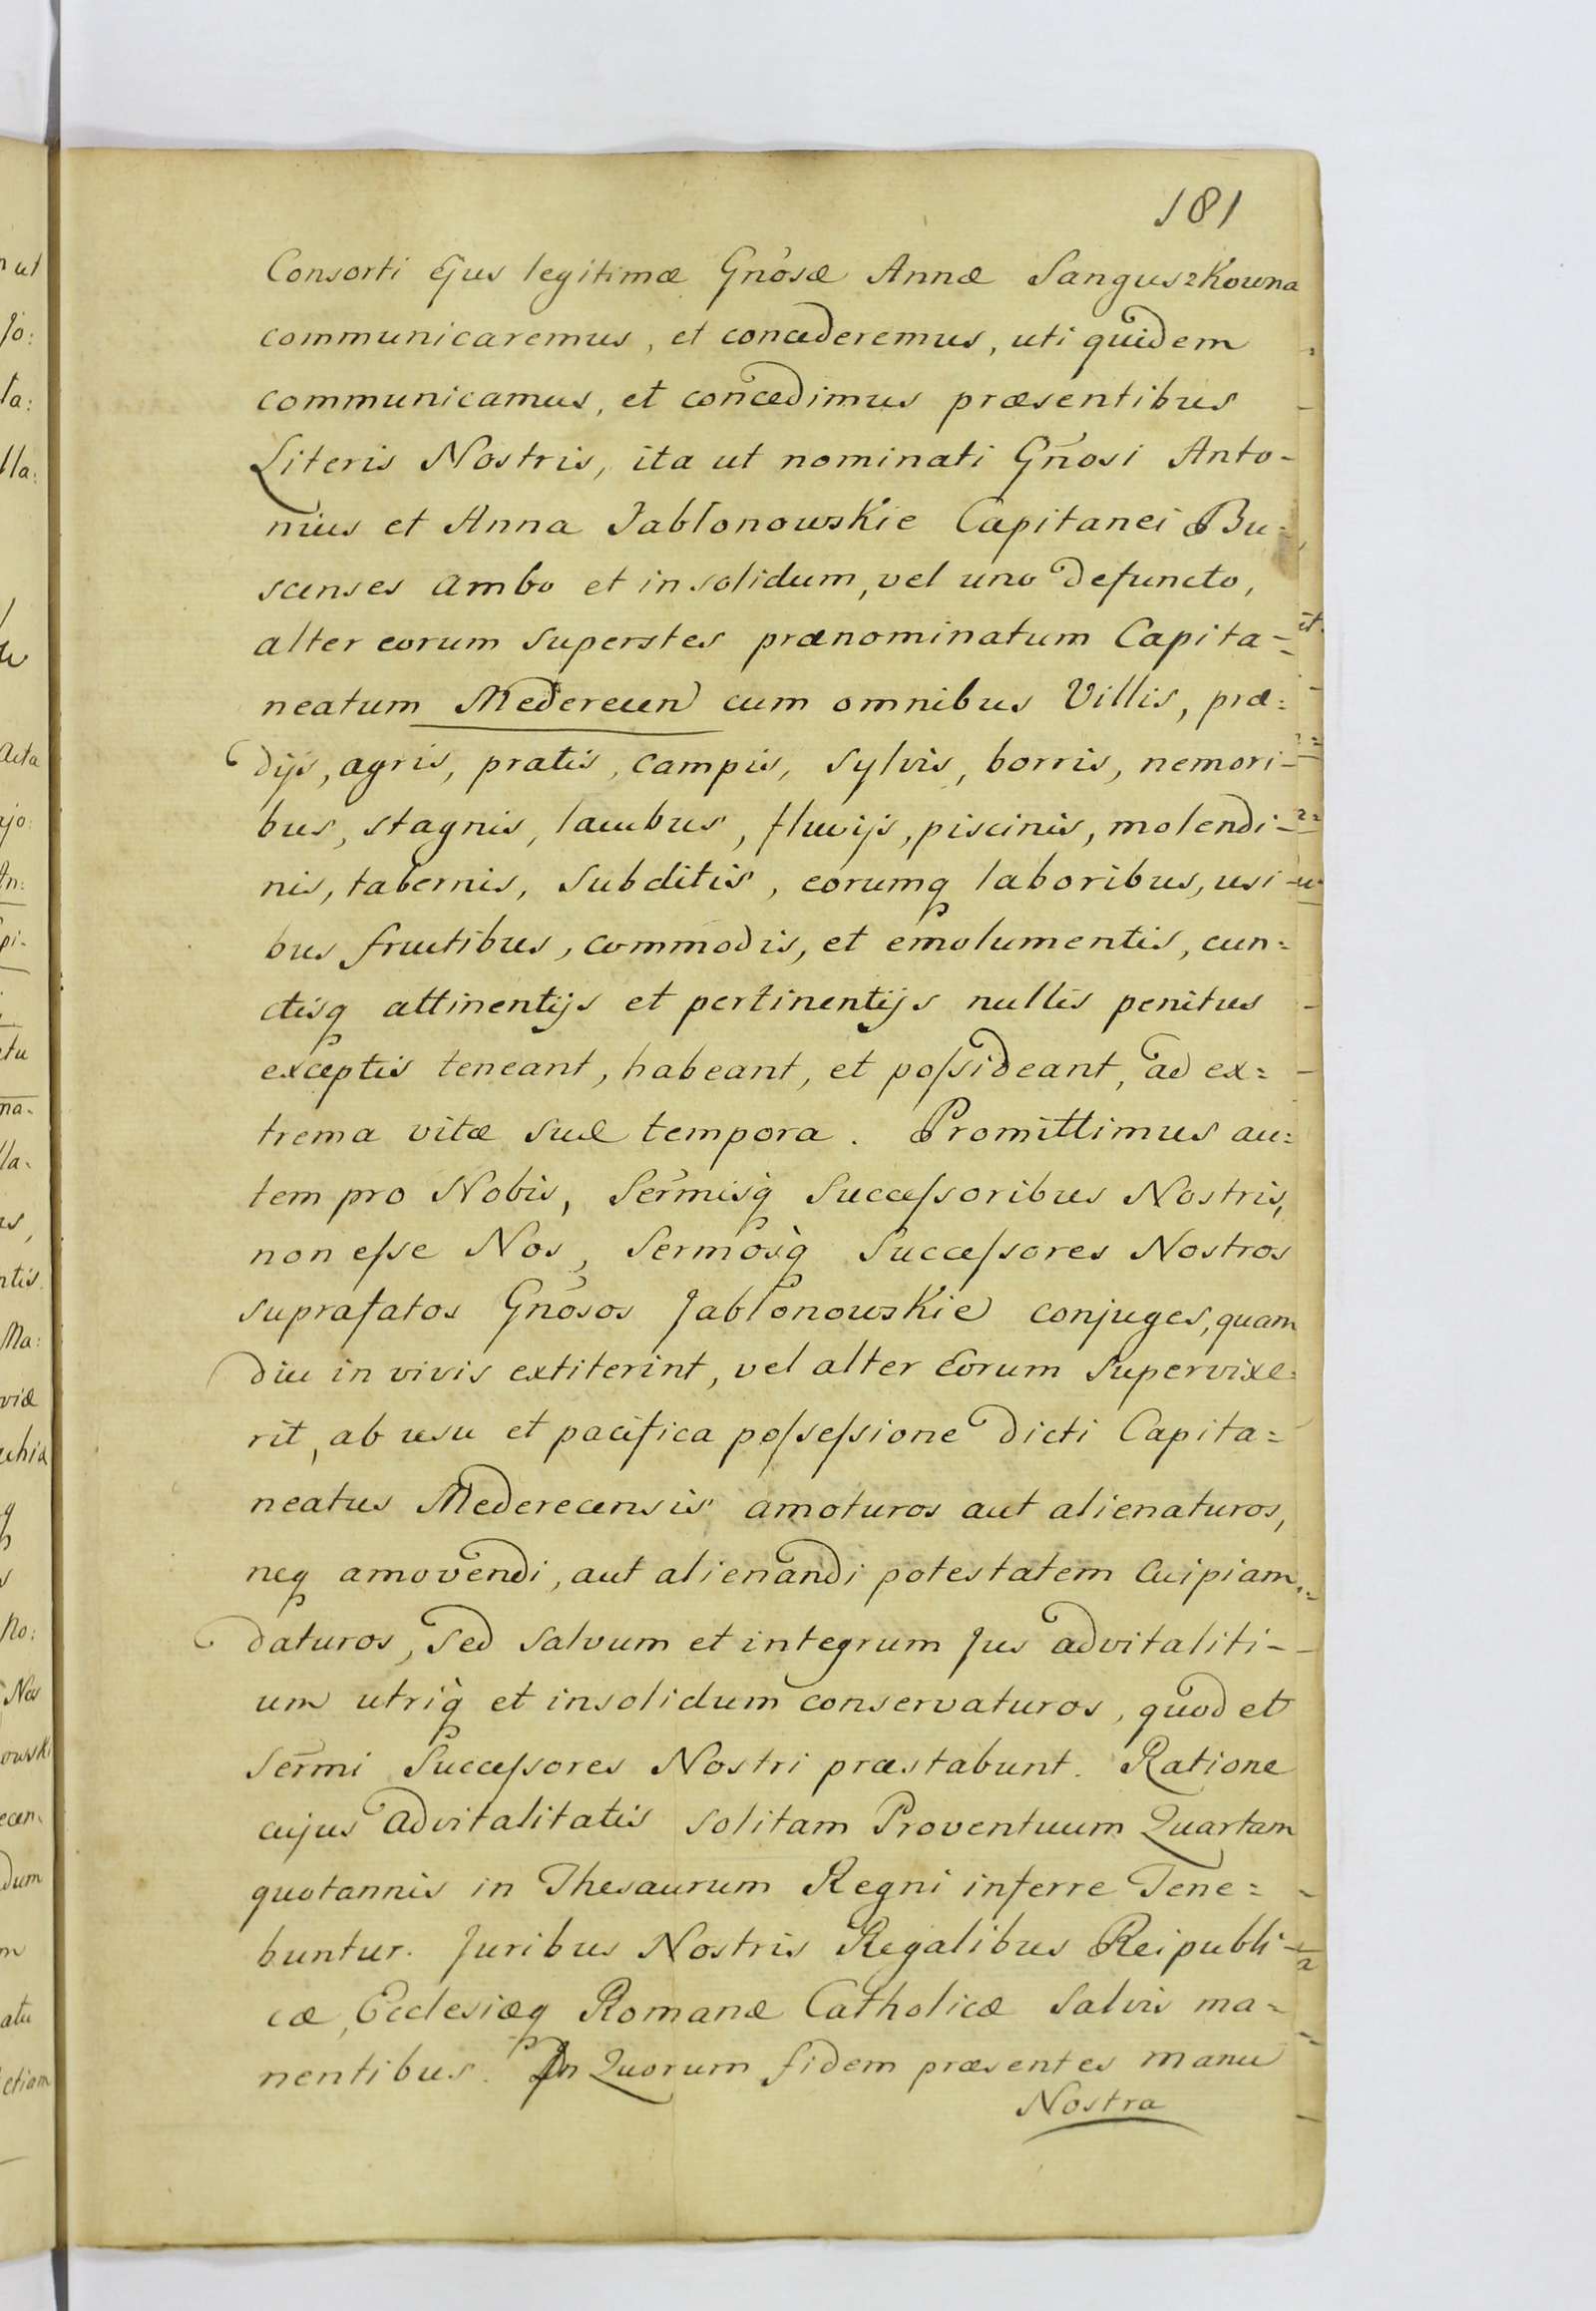 181
Consorti ejus legitimæ Gnosæ Annæ Sanguszkowna
communicaremus, et concederemus, uti quidem
communicamus, et concedimus præsentibus
Literis Nostris, ita ut nominati Gnosi Anto-
nius et Anna Jabłonowskie Capitanei Bu=
scenses ambo et in solidum, vel uno defuncto,
alter eorum superstes prænominatum Capita-
neatum Mederecen cum omnibus Villis, præ:
dijs, agris, pratis, campis, sylvis, borris, nemori-
bus, stagnis, lacubus, fluvijs, piscinis, molendi-
nis, tabernis, subditis, eorumq laboribus, usi-
bus fructibus, commodis, et emolumentis, cun=
ctisq attinentijs et pertinentijs nullis penitus
exceptis teneant, habeant, et poſsideant, ad ex=
trema vitæ suæ tempora. Promittimus au=
tem pro Nobis, Sermisq Succeſsoribus Nostris,
non eſse Nos, Sermosq Succeſsores Nostros
suprafatos Gnosos Jabłonowskie conjuges, quam
diu in vivis extiterint, vel alter Eorum supervixe=
rit, ab usu et pacifica poſseſsione dicti Capita=
neatus Mederecensis amoturos aut alienaturos,
neq amovendi, aut alienandi potestatem cuipiam
daturos, sed salvum et integrum Jus advitaliti-
um utriq et insolidum conservaturos, quod et
Sermi Succeſsores Nostri præstabunt. Ratione
cujus advitalitatis solitam Proventuum Quartam
quotannis in Thesaurum Regni inferre Tene=
buntur. Juribus Nostris Regalibus Reipubli-
cæ, Ecclesiæq Romanæ Catholicæ salvis ma=
nentibus. In Quorum fidem præsentes manu
Nostra